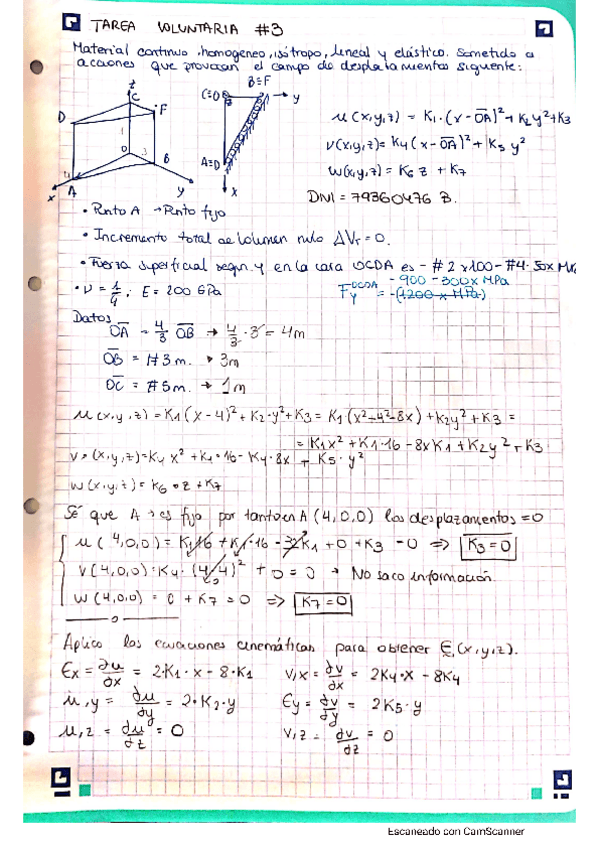 TAREA VOLUNTARIA #3
Material continuo, homogeneo, isótropo, lineal y elástico. Sometido a
acciones que provocan el campo de desplazamientos siguiente:
z
C
D
F
1
O
3
B
4
A
x
y
B≡F
C≡O
y
A≡D
x
u(x,y,z) = K1·(x-OA)²+K2y²+K3
v(x,y,z) = K4(x-OA)²+K5 y²
w(x,y,z) = K6 z + K7
DNI = 79360476 B.
• Punto A → Punto fijo
• Incremento total de volumen nulo ΔVT = 0.
• Fuerza superficial segun y en la cara OCDA es - #2 x100 - #4·50x MPa
-900 - 300x MPa
• ν = 1/4 ; E = 200 GPa
Fy^OCDA = -(1200 x MPa)
Datos
OA = 4/3 OB → 4/3 · 3 = 4m
OB = #3 m. → 3m
OC = #5 m. → 1m
u(x,y,z) = K1(x-4)²+K2·y²+K3 = K1(x²-4²-8x)+K2y²+K3 =
= K1x²+K1·16-8xK1+K2y²+K3
v=(x,y,z)=K4 x²+K4·16-K4·8x + K5·y²
w(x,y,z) = K6·z+K7
Sé que A → es fijo por tanto en A (4,0,0) los desplazamientos =0
u(4,0,0) = K1·16 + K1·16 - 32K1 + 0 + K3 = 0 => K3=0
v(4,0,0) = K4·(4-4)² + 0 = 0 → No saco información.
w(4,0,0) = 0 + K7 = 0 => K7=0
Aplico las ecuaciones cinemáticas para obtener E(x,y,z).
Ex = ∂u/∂x = 2·K1·x - 8·K1
v,x = ∂v/∂x = 2K4·x - 8K4
u,y = ∂u/∂y = 2·K2·y
Ey = ∂v/∂y = 2K5·y
u,z = ∂u/∂z = 0
v,z = ∂v/∂z = 0
Escaneado con CamScanner